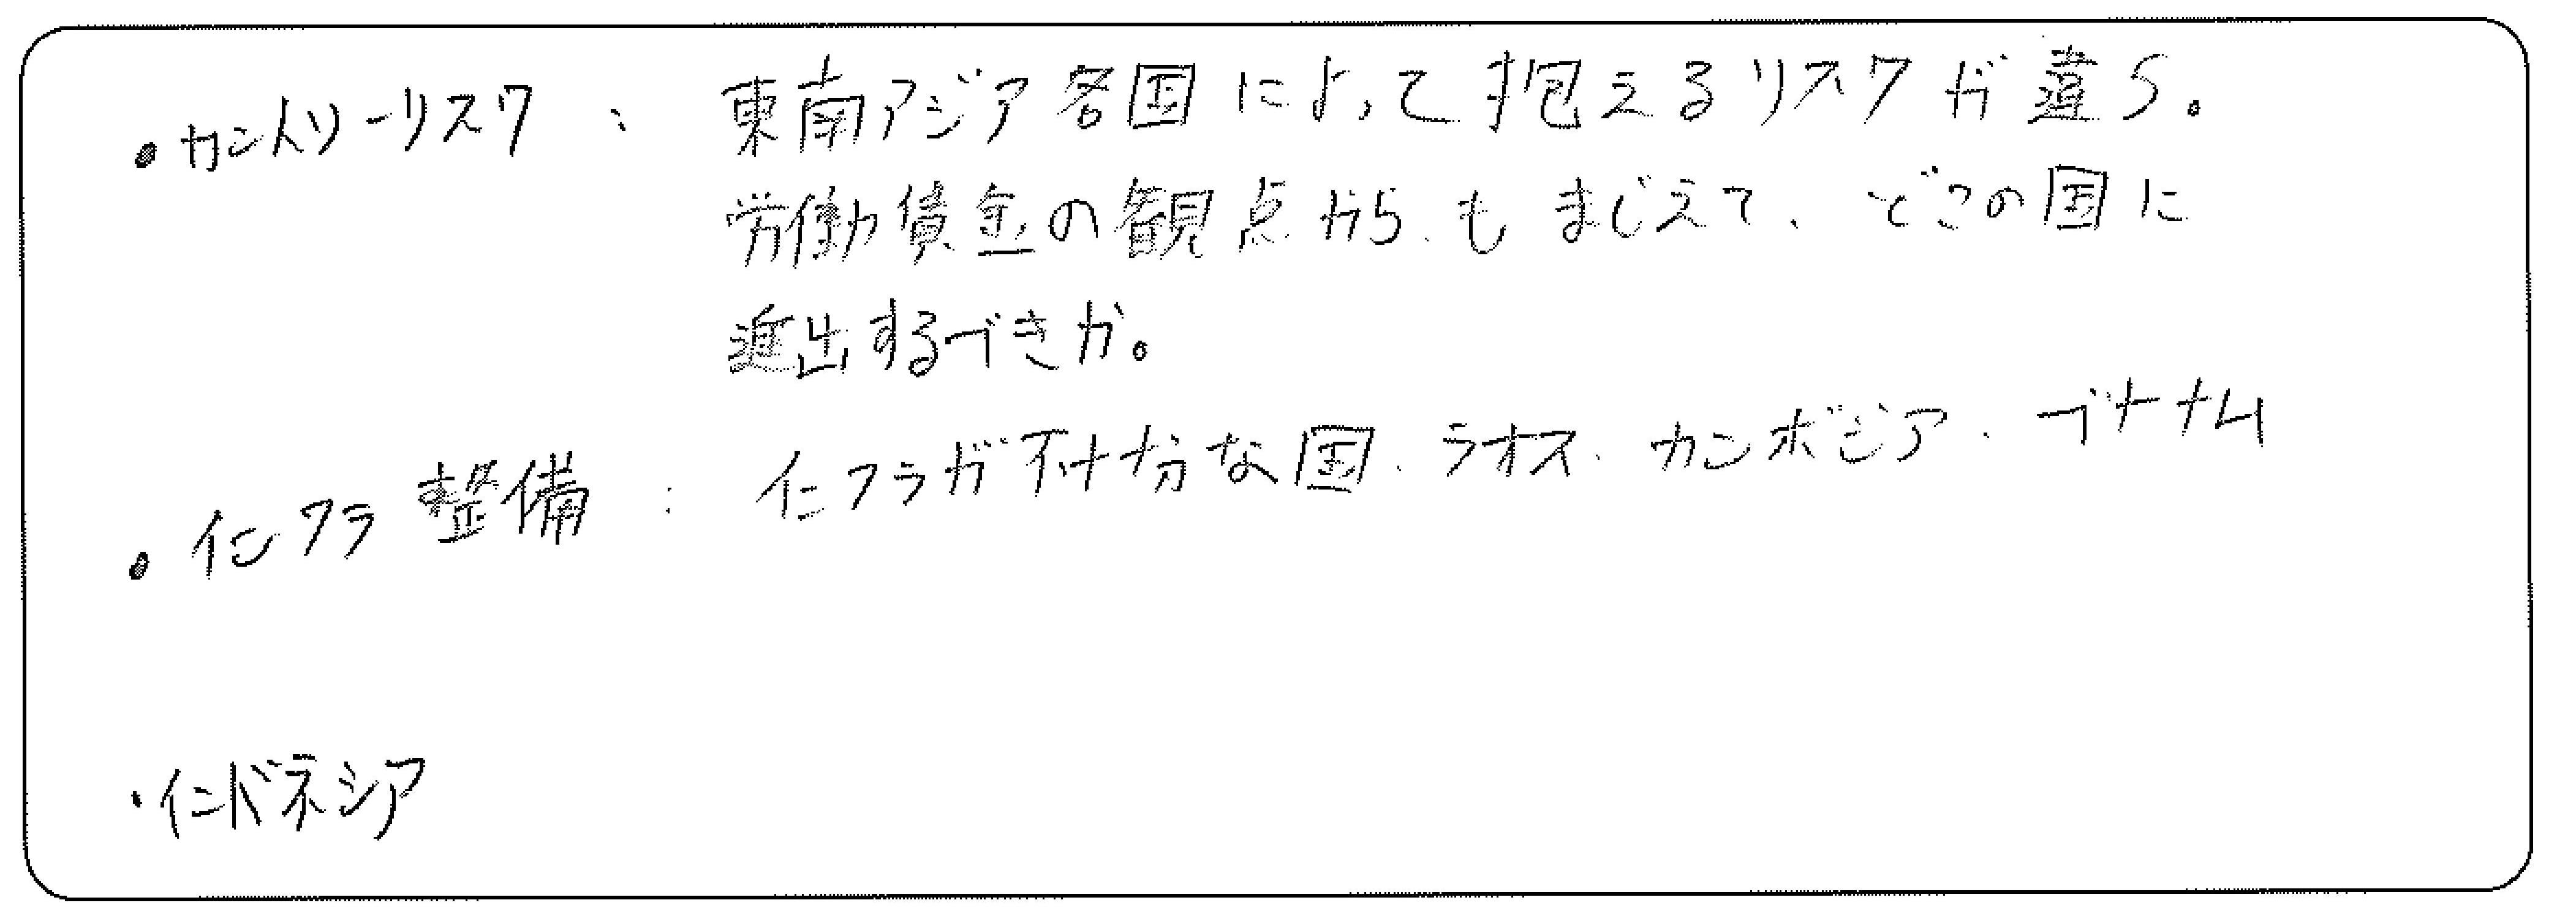 ・カントリーリスク : 東南アジア各国によって抱えるリスクが違う。
労働債金の観点からもまじえて、どこの国に
進出するべきか。
・インフラ整備 : インフラが不十分な国、ラオス、カンボジア、ベトナム
・インドネシア